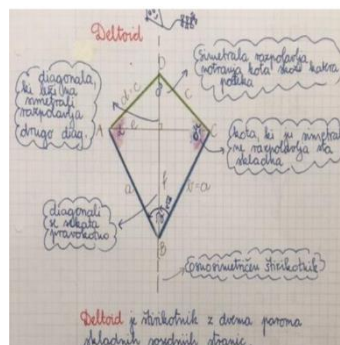 Deltoid
diagonala,
ki leži na
simetrali
razpolavlja
drugo diag.
simetrala razpolavlja
notranja kota skozi katera
poteka
D
d=c
c
e
A
C
kota, ki ju simetrala
ne razpolavlja sta
skladna
a
f
b=a
diagonali
se sekata
pravokotno
B
osnosimetričen štirikotnik
Deltoid je štirikotnik z dvema paroma
skladnih sosednih stranic.